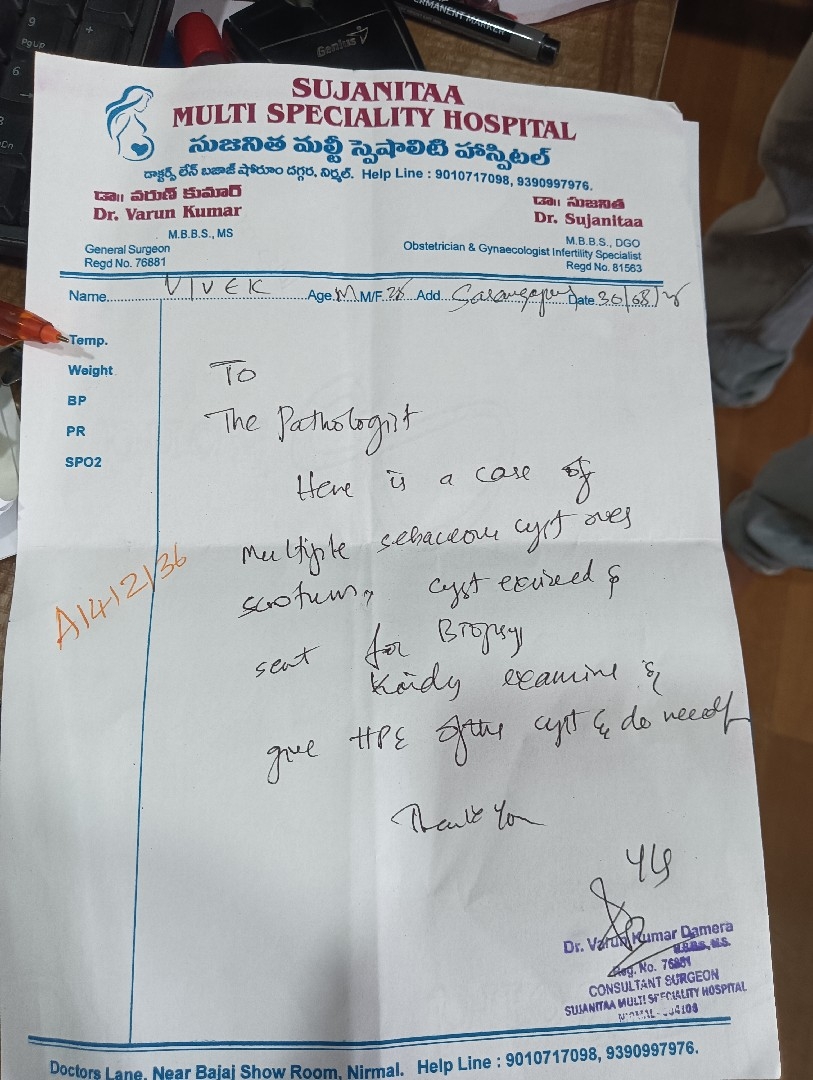 9
PgUp
+
6
Genius
PERMANENT MARKER
SUJANITAA
MULTI SPECIALITY HOSPITAL
సుజనిత మల్టీ స్పెషాలిటి హాస్పిటల్
డాక్టర్స్ లేన్ బజాజ్ షోరూం దగ్గర, నిర్మల్. Help Line : 9010717098, 9390997976.
డా॥ వరుణ్ కుమార్
Dr. Varun Kumar
M.B.B.S., MS
General Surgeon
Regd No. 76881
డా॥ సుజనిత
Dr. Sujanitaa
M.B.B.S., DGO
Obstetrician & Gynaecologist Infertility Specialist
Regd No. 81563
Name VIVEK Age M M/F 28 Add Sarangapur Date 30/08/
Temp.
Weight
BP
PR
SPO2
To
The Pathologist
Here is a case of
Multiple sebaceous cyst over
scrotum, cyst excised &
sent for Biopsy
Kindly examine &
give HPE of the cyst & do needf
Thank You
A/4/2/36
Dr. Varun Kumar Damera
M.B.B.S., M.S.
Reg. No. 76881
CONSULTANT SURGEON
SUJANITAA MULTI SPECIALITY HOSPITAL
Doctors Lane, Near Bajaj Show Room, Nirmal. Help Line : 9010717098, 9390997976.